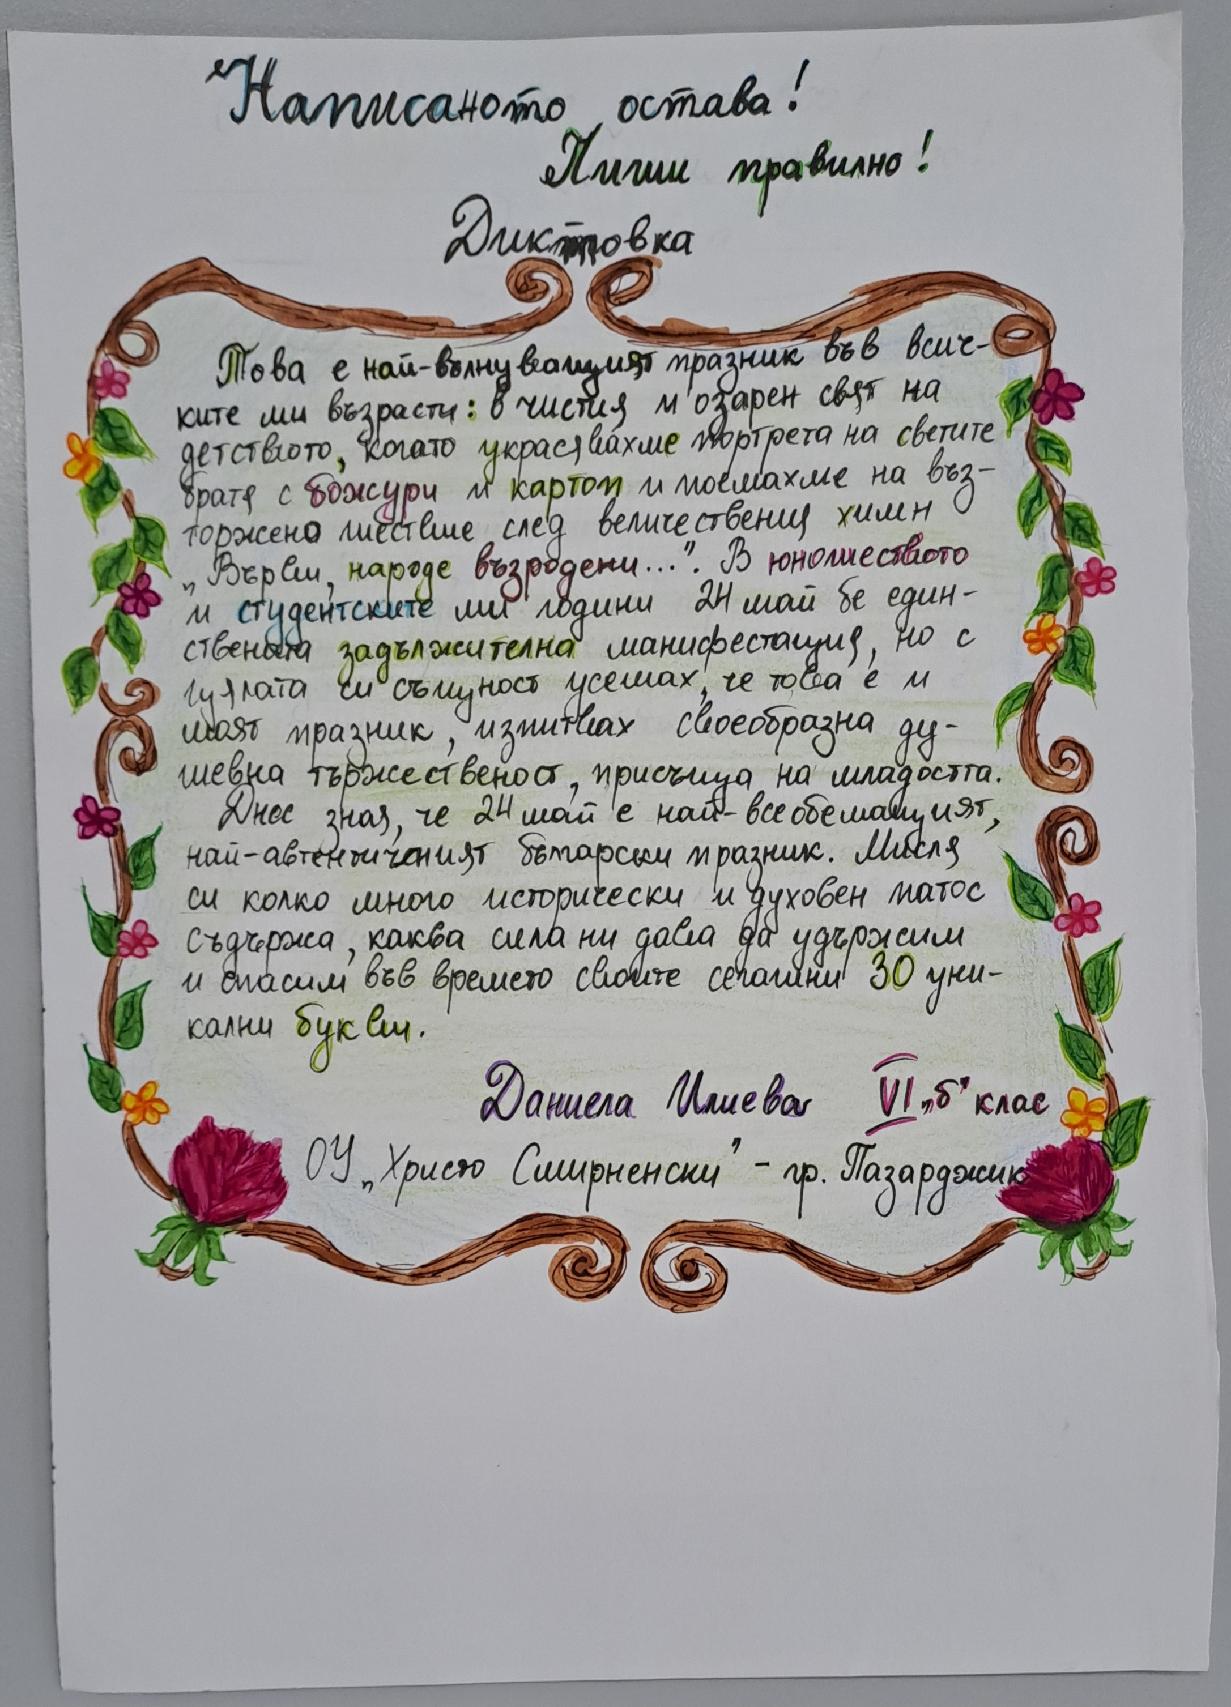 Написаното остава!
Пиши правилно!
Диктовка
Това е най-вълнуващият празник във всич-
ките ми възрасти: в чистия и озарен свят на
детството, когато украсявахме портрета на светите
братя с божури и картоп и поемахме на въз-
торжено шествие след величествения химн
„Върви, народе възродени...". В юношеството
и студентските ми години 24 май бе един-
ствената задължителна манифестация, но с
цялата си същност усещах, че това е и
моят празник, изпитвах своеобразна ду-
шевна тържественост, присъща на младостта.
Днес зная, че 24 май е най-всеобемащият,
най-автентичният български празник. Мисля
си колко много исторически и духовен патос
съдържа, каква сила ни дава да удържим
и спасим във времето своите сегашни 30 уни-
кални букви.
Даниела Илиева VI „б" клас
ОУ „Христо Смирненски" - гр. Пазарджик